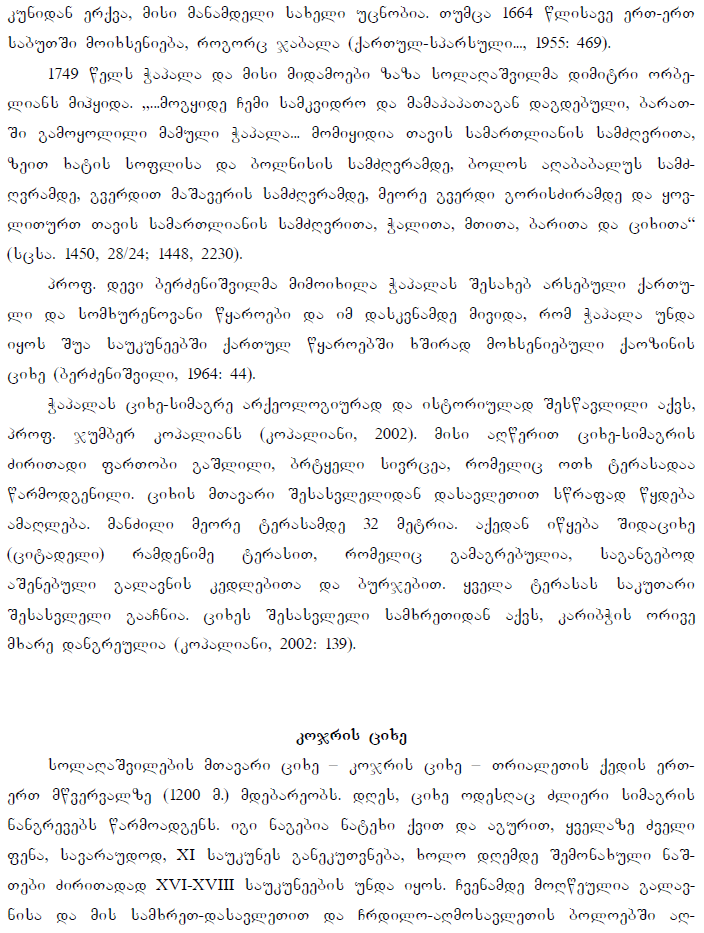 კუნიდან ერქვა, მისი მანამდელი სახელი უცნობია. თუმცა 1664 წლისავე ერთ-ერთ
საბუთში მოიხსენიება, როგორც ჯაბალა (ქართულ-სპარსული..., 1955: 469).
1749 წელს ჭაპალა და მისი მიდამოები ზაზა სოლაღაშვილმა დიმიტრი ორბე-
ლიანს მიჰყიდა. „...მოგყიდე ჩემი სამკვიდრო და მამაპაპათაგან დაგდებული, ბარათ-
ში გამოყოლილი მამული ჭაპალა... მომიყიდია თავის სამართლიანის სამძღვრითა,
ზეით ხატის სოფლისა და ბოლნისის სამძღვრამდე, ბოლოს აღაბაბალუს სამძ-
ღვრამდე, გვერდით მაშავერის სამძღვრამდე, მეორე გვერდი გორისძირამდე და ყოვ-
ლითურთ თავის სამართლიანის სამძღვრითა, ჭალითა, მთითა, ბარითა და ციხითა“
(სცსა. 1450, 28/24; 1448, 2230).
პროფ. დევი ბერძენიშვილმა მიმოიხილა ჭაპალას შესახებ არსებული ქართუ-
ლი და სომხურენოვანი წყაროები და იმ დასკვნამდე მივიდა, რომ ჭაპალა უნდა
იყოს შუა საუკუნეებში ქართულ წყაროებში ხშირად მოხსენიებული ქაოზინის
ციხე (ბერძენიშვილი, 1964: 44).
ჭაპალას ციხე-სიმაგრე არქეოლოგიურად და ისტორიულად შესწავლილი აქვს,
პროფ. ჯუმბერ კოპალიანს (კოპალიანი, 2002). მისი აღწერით ციხე-სიმაგრის
ძირითადი ფართობი გაშლილი, ბრტყელი სივრცეა, რომელიც ოთხ ტერასადაა
წარმოდგენილი. ციხის მთავარი შესასვლელიდან დასავლეთით სწრაფად წყდება
ამაღლება. მანძილი მეორე ტერასამდე 32 მეტრია. აქედან იწყება შიდაციხე
(ციტადელი) რამდენიმე ტერასით, რომელიც გამაგრებულია, საგანგებოდ
აშენებული გალავნის კედლებითა და ბურჯებით. ყველა ტერასას საკუთარი
შესასვლელი გააჩნია. ციხეს შესასვლელი სამხრეთიდან აქვს, კარიბჭის ორივე
მხარე დანგრეულია (კოპალიანი, 2002: 139).
კოჯრის ციხე
სოლაღაშვილების მთავარი ციხე – კოჯრის ციხე – თრიალეთის ქედის ერთ-
ერთ მწვერვალზე (1200 მ.) მდებარეობს. დღეს, ციხე ოდესღაც ძლიერი სიმაგრის
ნანგრევებს წარმოადგენს. იგი ნაგებია ნატეხი ქვით და აგურით, ყველაზე ძველი
ფენა, სავარაუდოდ, XI საუკუნეს განეკუთვნება, ხოლო დღემდე შემონახული ნაშ-
თები ძირითადად XVI-XVIII საუკუნეების უნდა იყოს. ჩვენამდე მოღწეულია გალავ-
ნისა და მის სამხრეთ-დასავლეთით და ჩრდილო-აღმოსავლეთის ბოლოებში აღ-